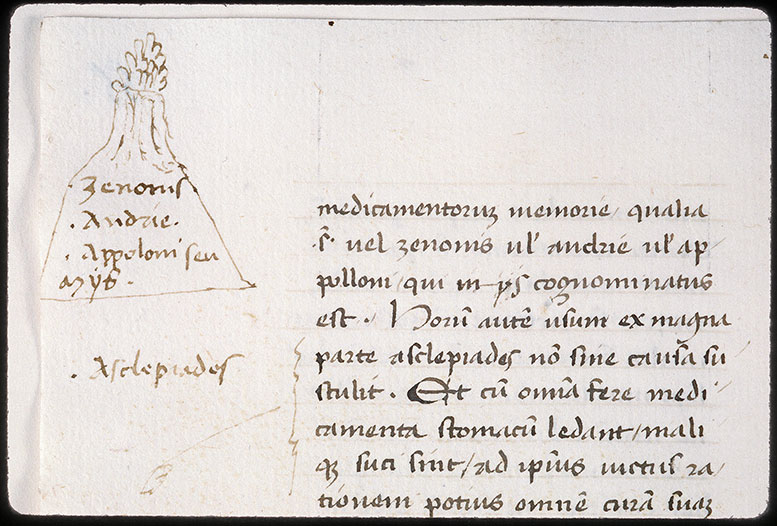 · Zenonis ·
· Andrie ·
· Appoloni seu
mÿs ·
· Asclepiades
medicamentoruʒ memorie / qualia
·s̄· uel zenonis ul' andrie ul' ap/
polloni / qui in ÿs cognominatus
est · Horū autē usum ex magna
parte asclepiades nō sine causa su/
stulit · Et cū omīa fere medi/
camenta stomacū ledant / mali
qꝫ suci sint / ad ip̄ius uictus ra/
tionem potius omnē curā suaʒ